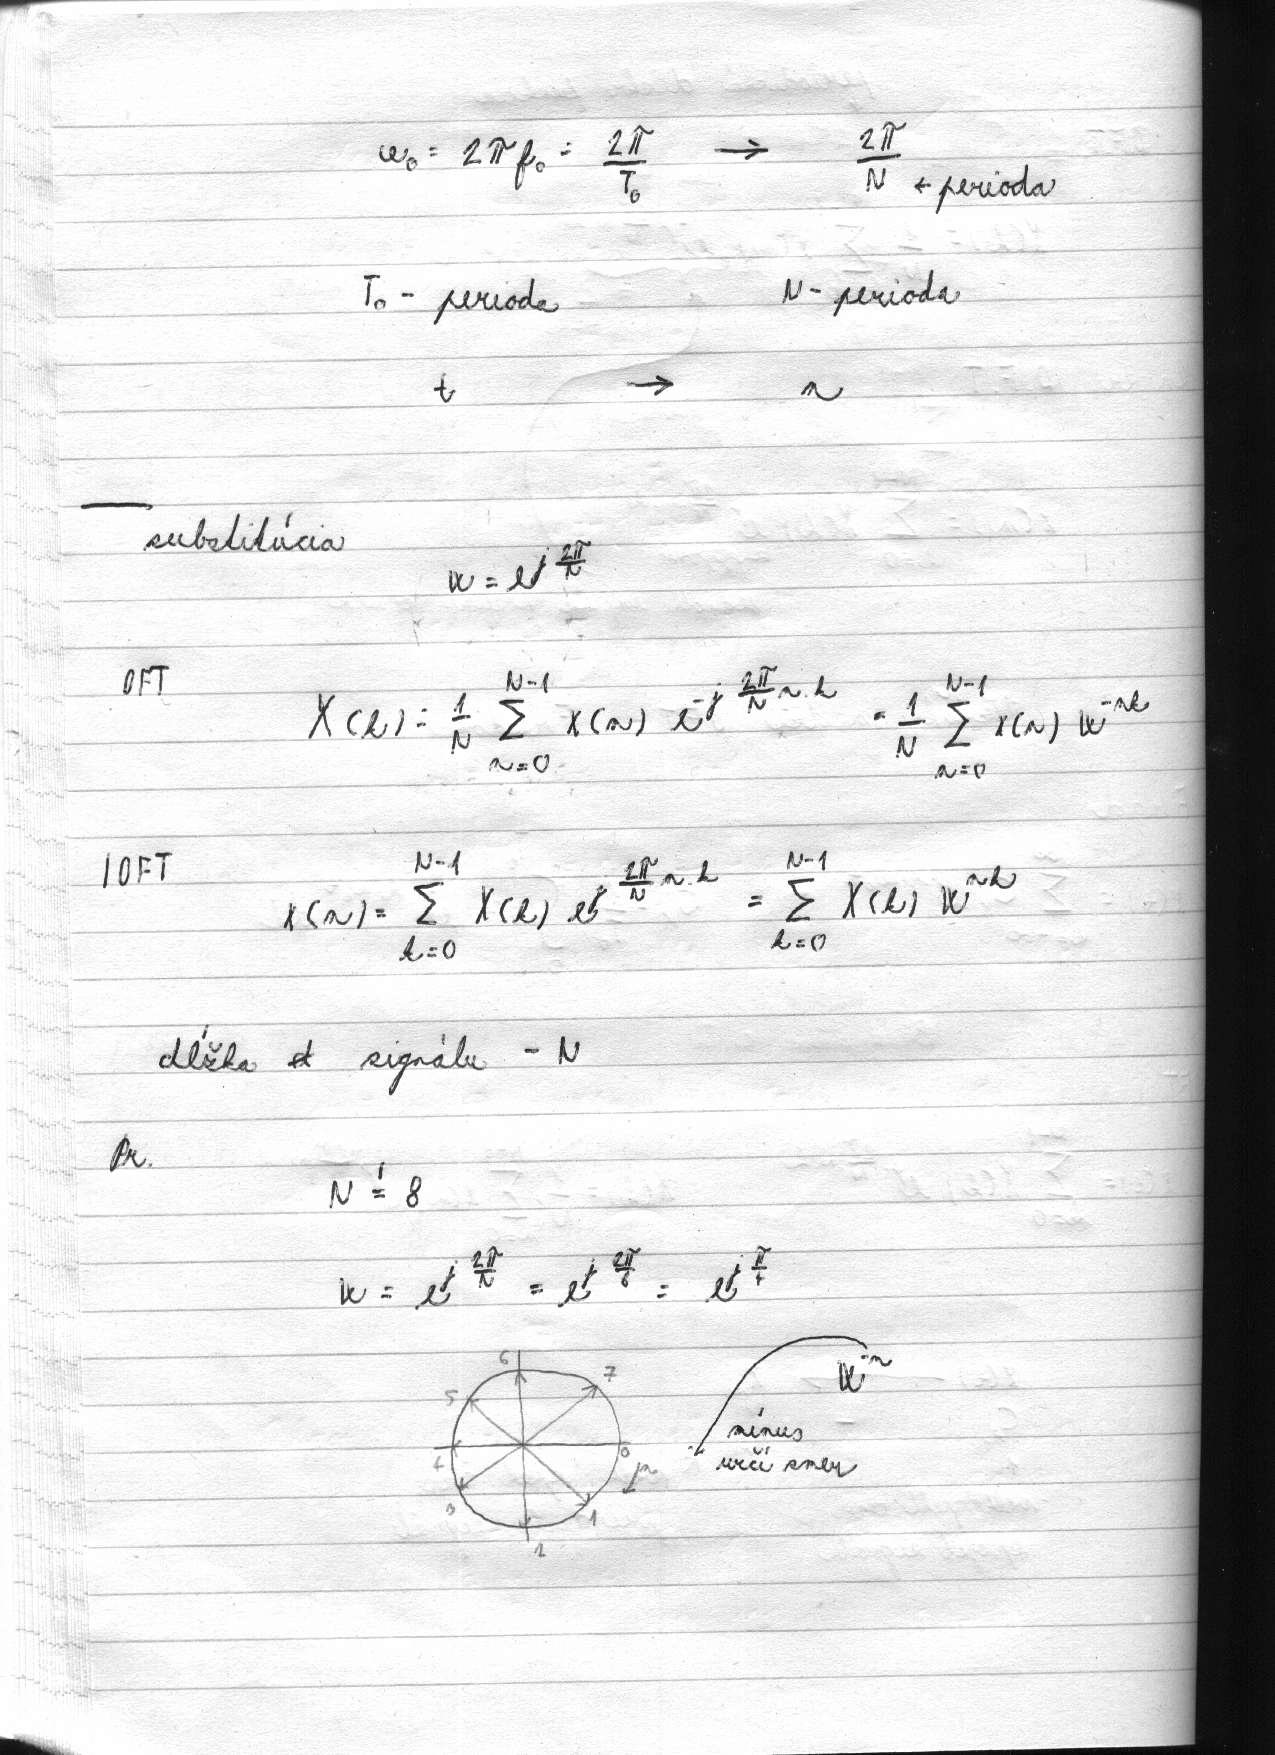 ω₀ = 2πf₀ = 2π/T₀ → 2π/N ← perioda
T₀ - perioda N - perioda
t → n
substitúcia
w = e^{j 2π/N}
DFT X(k) = 1/N ∑_{n=0}^{N-1} x(n) e^{-j 2π/N n.k} = 1/N ∑_{n=0}^{N-1} x(n) w^{-nk}
IDFT x(n) = ∑_{k=0}^{N-1} X(k) e^{j 2π/N n.k} = ∑_{k=0}^{N-1} X(k) w^{nk}
dĺžka signálu - N
Pr.
N = 8
w = e^{j 2π/N} = e^{j 2π/8} = e^{j π/4}
6 7
w^{-n}
5
mínus
0
4 n
určí smer
3 1
2